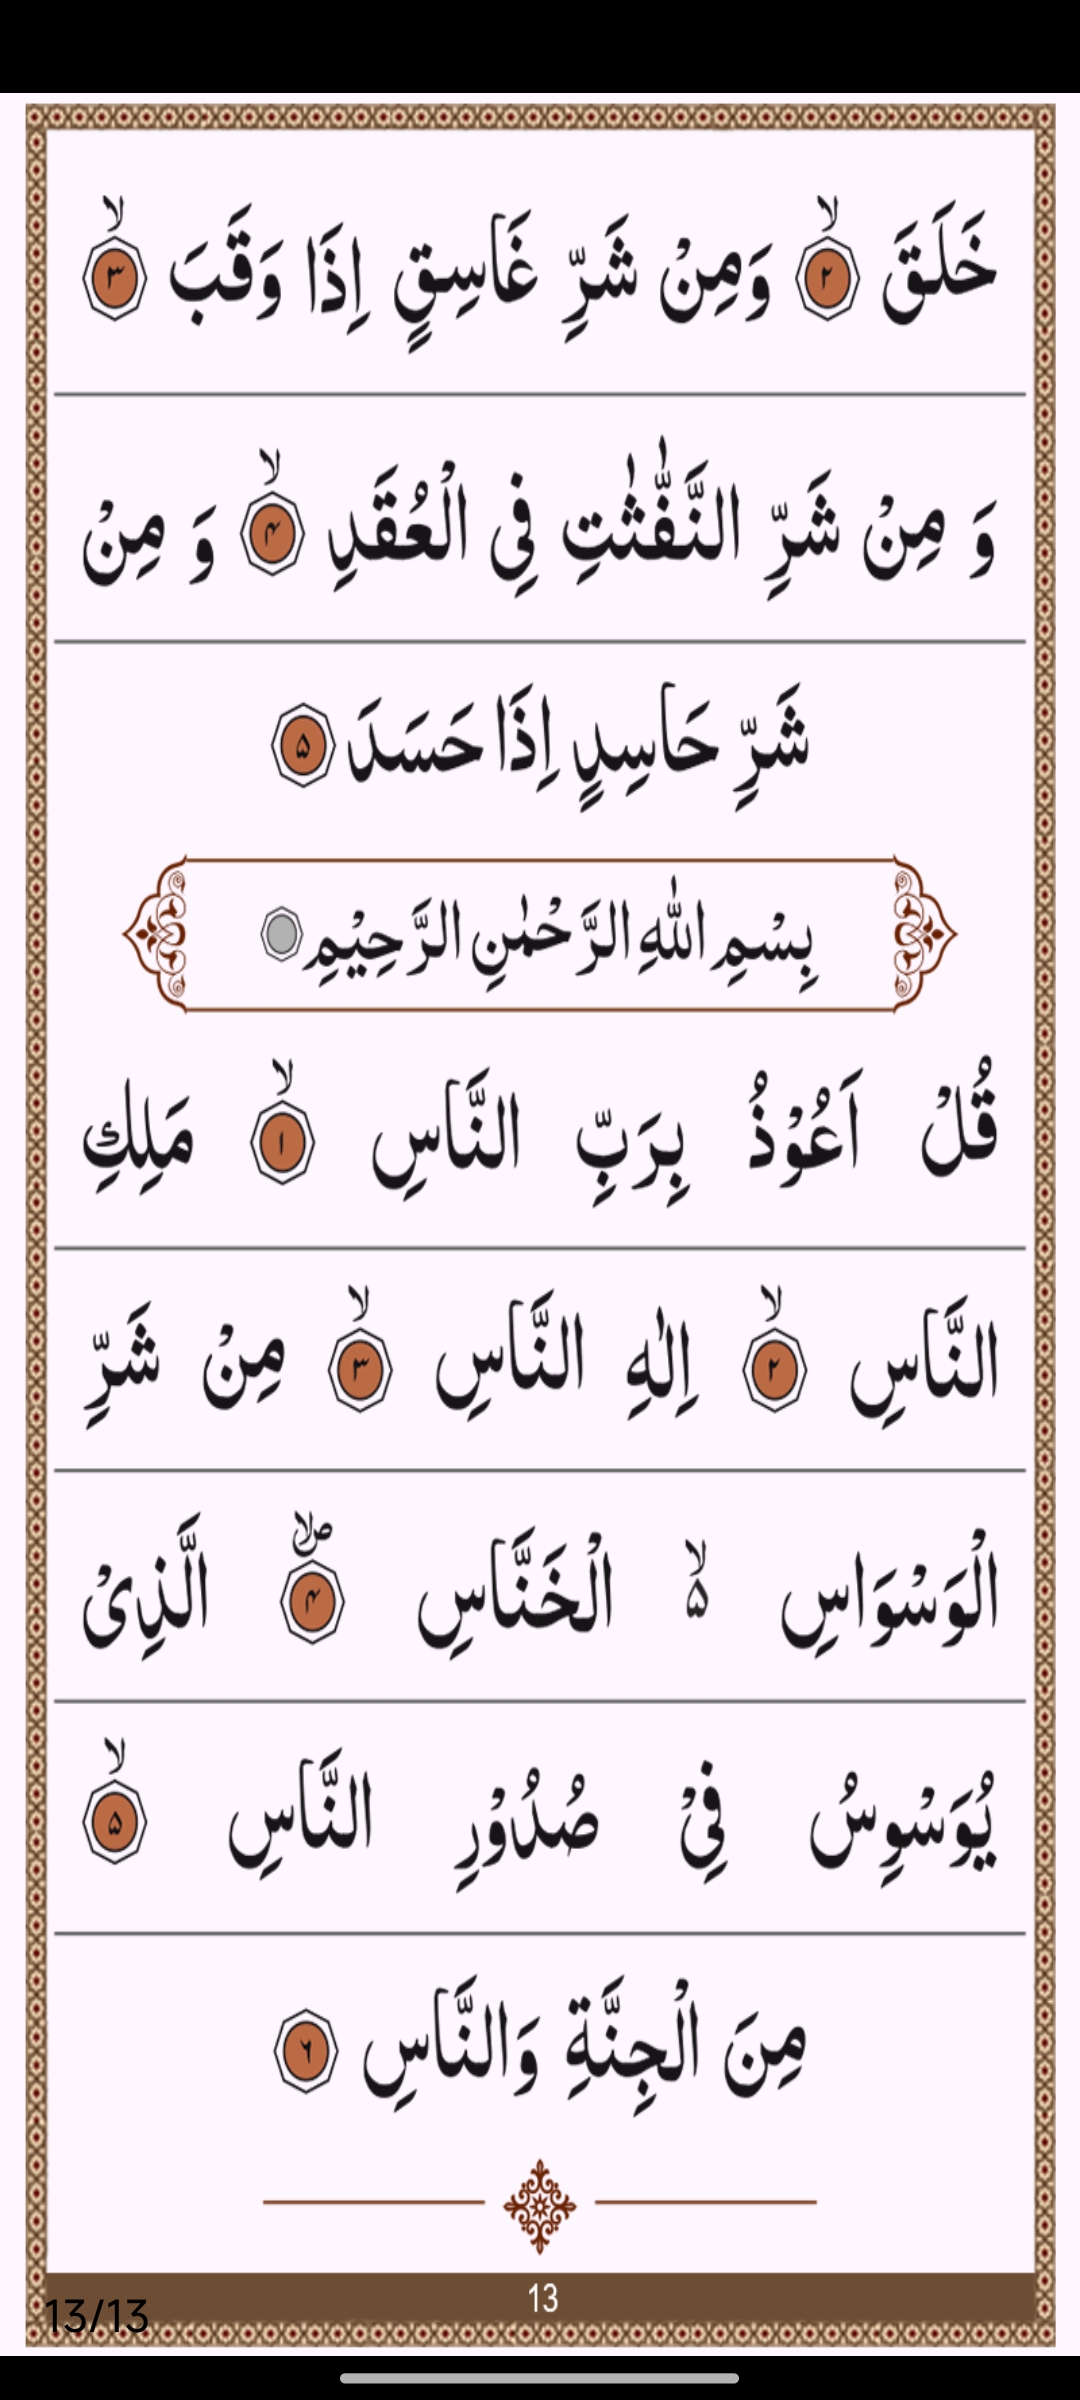 خَلَقَ ۙ﴿۲﴾ وَمِنْ شَرِّ غَاسِقٍ اِذَا وَقَبَ ۙ﴿۳﴾
وَ مِنْ شَرِّ النَّفّٰثٰتِ فِی الْعُقَدِ ۙ﴿۴﴾ وَ مِنْ
شَرِّ حَاسِدٍ اِذَا حَسَدَ ﴿۵﴾
بِسْمِ اللّٰهِ الرَّحْمٰنِ الرَّحِیْمِ
قُلْ اَعُوْذُ بِرَبِّ النَّاسِ ۙ﴿۱﴾ مَلِكِ
النَّاسِ ۙ﴿۲﴾ اِلٰهِ النَّاسِ ۙ﴿۳﴾ مِنْ شَرِّ
الْوَسْوَاسِ ۙ۵ الْخَنَّاسِ ۪ۙ﴿۴﴾ الَّذِیْ
یُوَسْوِسُ فِیْ صُدُوْرِ النَّاسِ ۙ﴿۵﴾
مِنَ الْجِنَّةِ وَالنَّاسِ ﴿۶﴾
13
13/13